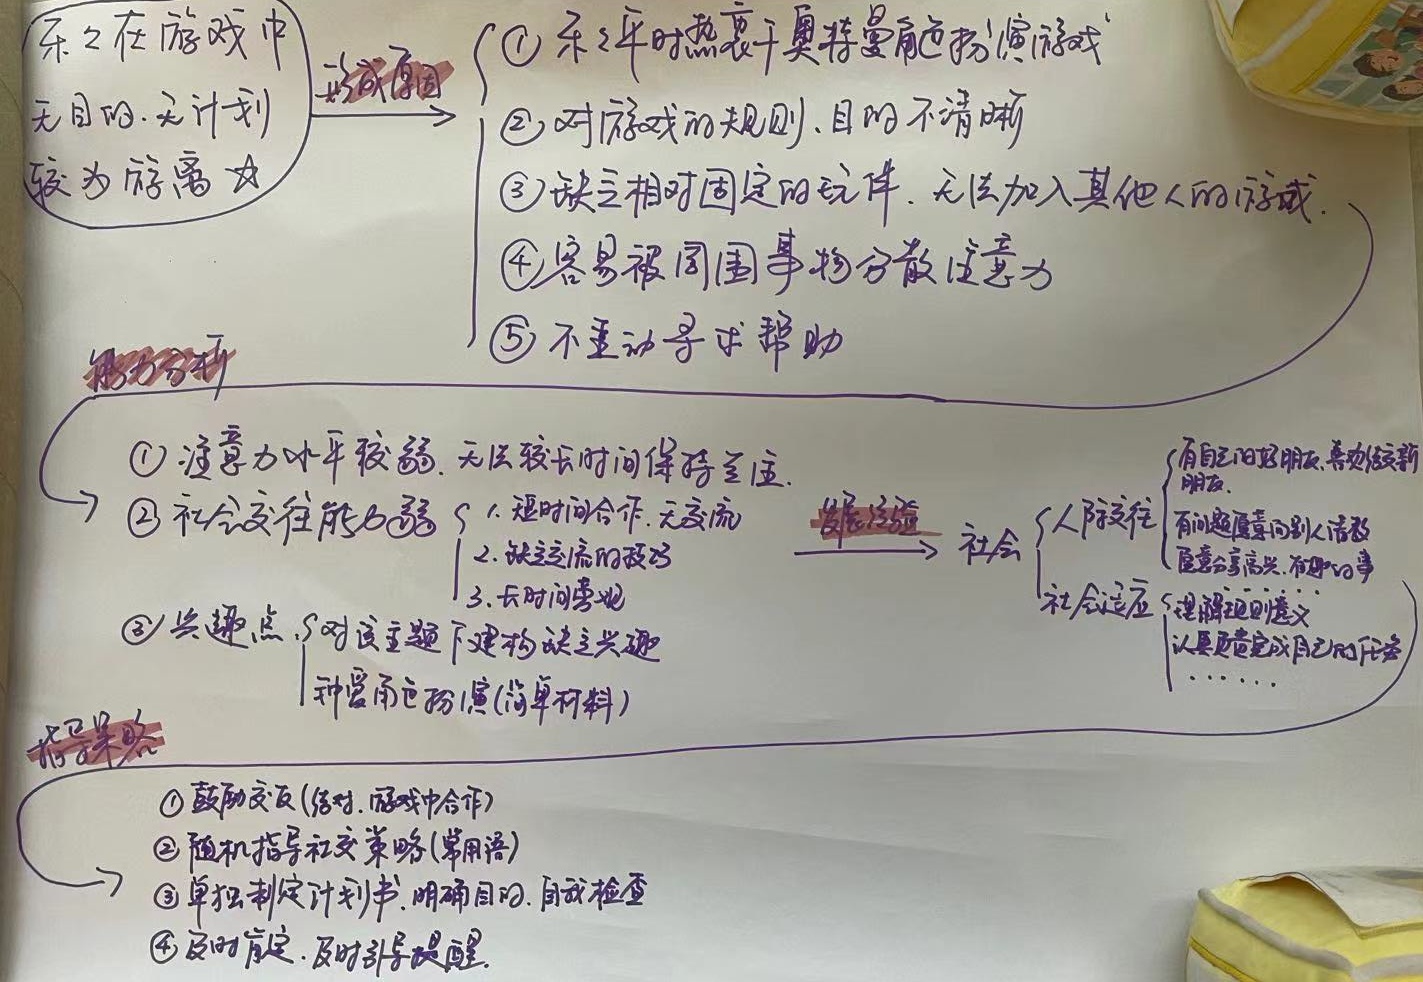 乐乐在游戏中
无目的、无计划
较为游离☆
形成原因
① 乐乐平时热衷于奥特曼角色扮演游戏
② 对游戏的规则、目的不清晰
③ 缺乏相对固定的玩伴、无法加入其他人的游戏.
④ 容易被周围事物分散注意力
⑤ 不主动寻求帮助
能力分析
① 注意力水平较弱、无法较长时间保持专注.
② 社会交往能力弱
1. 短时间合作、无交流
2. 缺乏交流的技巧
3. 长时间旁观
③ 兴趣点
对该主题下建构缺乏兴趣
钟爱角色扮演(简单材料)
发展经验
社会
人际交往
有自己的好朋友、喜欢结交新
朋友.
有问题愿意向别人请教
愿意分享高兴、有趣的事
......
社会适应
理解规则意义
认真负责完成自己的任务
......
指导策略
① 鼓励交友(结对、游戏中合作)
② 随机指导社交策略(常用语)
③ 单独制定计划书、明确目的、自我检查
④ 及时肯定、及时引导提醒.